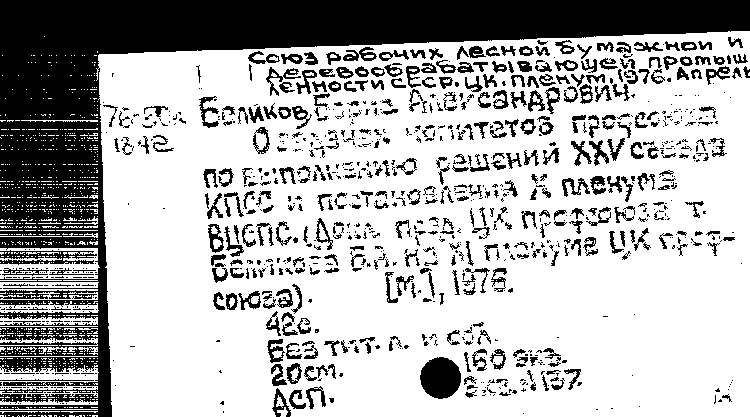 Союз рабочих лесной бумажной и
деревообрабатывающей промыш
ленности СССР. ЦК. Пленум, 1976. Апрель
Беликов, Борис Александрович.
О задачах комитетов профсоюза
по выполнению решений XXV съезда
КПСС и постановления X пленума
ВЦСПС. (Докл. пред. ЦК профсоюза т.
Беликова Б.А. на XI пленуме ЦК проф-
союза). [М.], 1976.
42с.
Без тит. л. и обл.
20см. 160 экз.
Экз. N 137
ДСП.